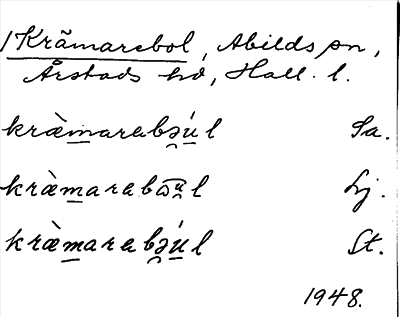 Krämarebol, Abilds sn,
Årstads hd, Hall. l.
kræ̀m̲arabə̯ú̲l Sa.
kræ̀m̲arabω͡u̯l Lj.
kræ̀m̲arabə̯ú̲l St.
1948.